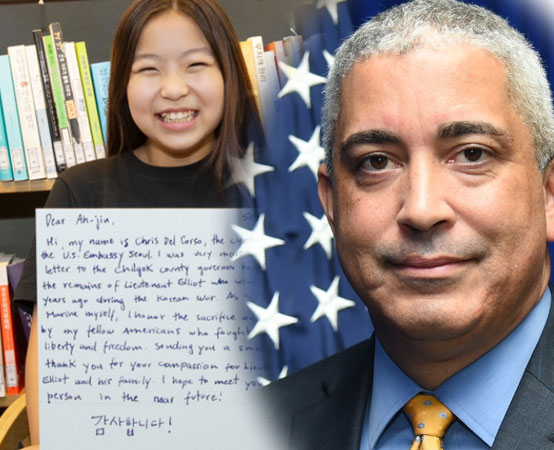 Dear Ah-jin,
Hi, my name is Chris Del Corso, the
the U.S. Embassy Seoul. I was very
letter to the Chilgok county governor
the remains of Lieutenant Elliot who
years ago during the Korean War. As
Marine myself, I honor the sacrifice
by my fellow Americans who fought
liberty and freedom. Sending you a
thank you for your compassion for
Elliot and his family. I hope to meet you
person in the near future!
감사합니다!